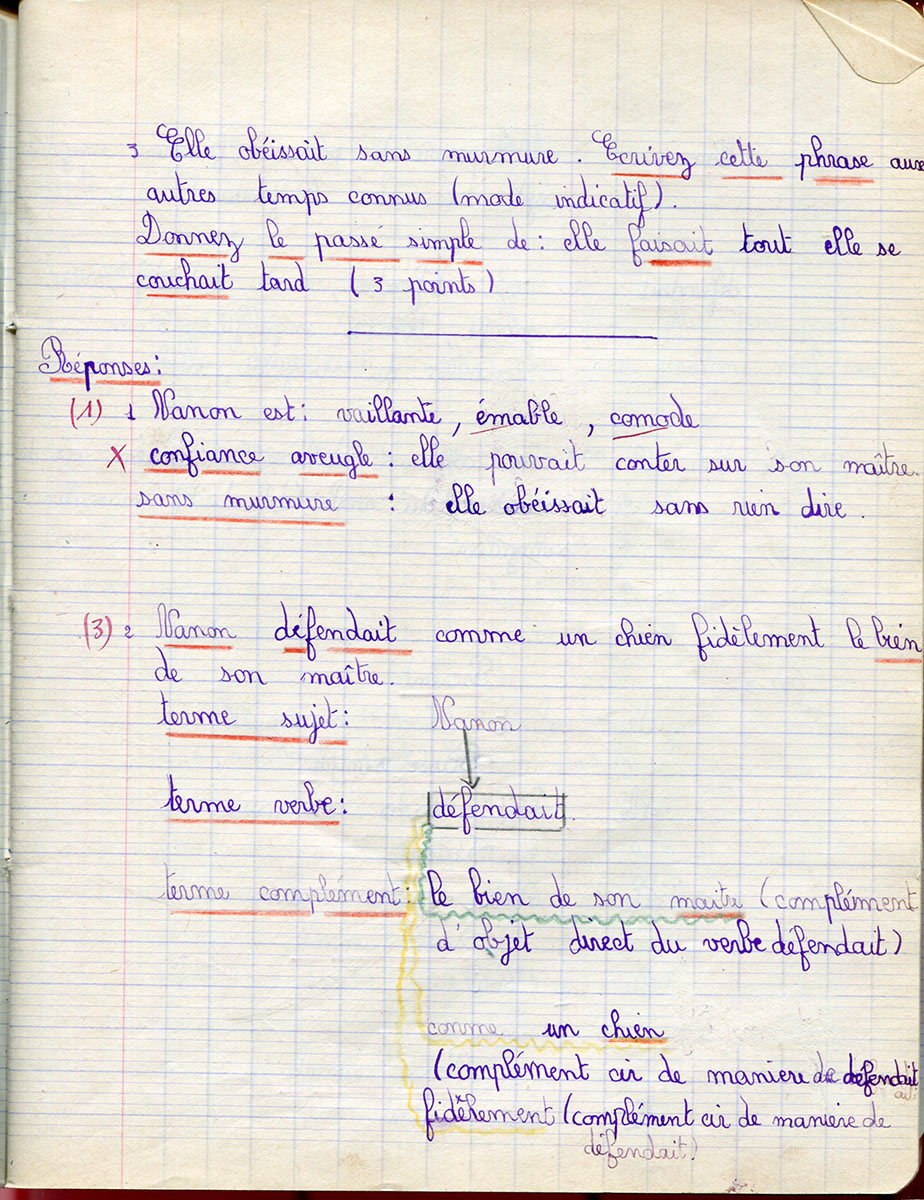 3 Elle obéissait sans murmure. Ecrivez cette phrase aux
autres temps connus (mode indicatif).
Donnez le passé simple de : elle faisait tout elle se
couchait tard (3 points)
Réponses :
(1) 1 Nanon est : vaillante, émable, comode
X confiance aveugle : elle pouvait conter sur son maître.
sans murmure : elle obéissait sans rien dire.
(3) 2 Nanon défendait comme un chien fidèlement le bien
de son maître.
terme sujet : Nanon
terme verbe : défendait.
terme complément : le bien de son maitre (complément
d'objet direct du verbe défendait)
comme un chien
(complément cir de maniere de défendait
fidèlement (complément cir de maniere de
défendait)